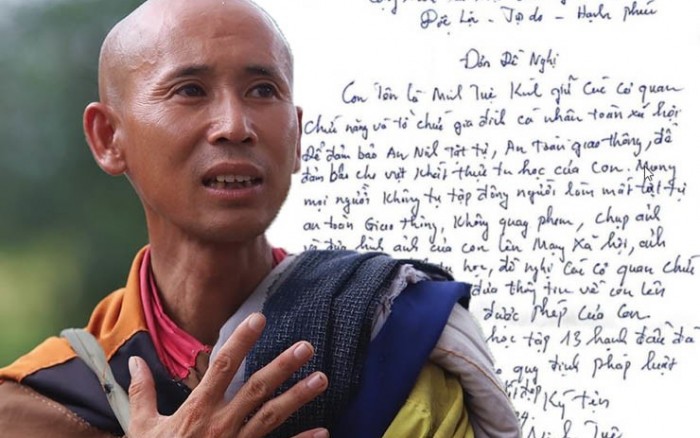 Độc Lập - Tự do - Hạnh phúc
Đơn Đề Nghị
Con Tên Là Minh Tuệ Kính gửi Các cơ quan
Chức năng và tổ chức gia đình cá nhân toàn xã hội
Để đảm bảo An Ninh Trật tự, An Toàn giao thông, để
đảm bảo cho việc khất thực tu học của Con. Mong
mọi người không tụ tập đông người làm mất trật tự
an toàn Giao thông, không quay phim, chụp ảnh
và đưa hình ảnh của con lên Mạng Xã hội, ảnh
học, đề nghị Các cơ quan chức
đưa thông tin về con lên
được phép Của Con
học tập 13 hạnh đầu đà
quy định pháp luật
Ký tên
Minh Tuệ